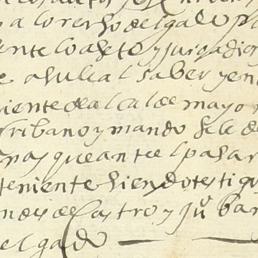 a lorenso delgado p
ente lo aseto y juro a dios
e a su leal saber y en
iente de alcalde mayor
scribano y mando se le de
nas que ante el pasar
teniente siendo testigo
endes de Castro y juº bar
elgado